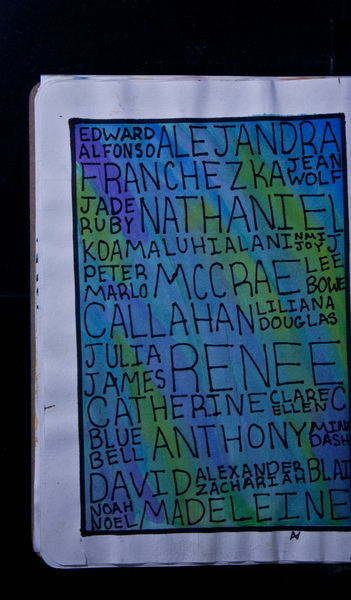 EDWARD ALFONSO ALEJANDRA
FRANCHEZKA JEAN WOLF
JADE RUBY NATHANIEL
KOAMALUHIALANI NMI JOY J
PETER MARLO MCCRAE LEE BOWE
CALLAHAN LILIANA DOUGLAS
JULIA JAMES RENEE
CATHERINE CLARE ELLEN C
BLUE BELL ANTHONY DASH
DAVID ALEXANDER ZACHARIAH BLAI
NOAH NOEL MADELEINE